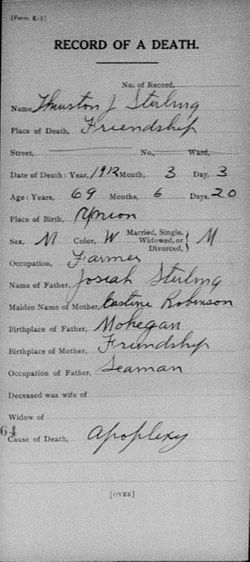 [Form K-1]
RECORD OF A DEATH.
No. of Record,
Name, Thurston J Sterling
Place of Death, Friendship
Street, No., Ward,
Date of Death: Year, 1912 Month, 3 Day, 3
Age: Years, 69 Months, 6 Days, 20
Place of Birth, Union
Sex, M Color, W Married, Single, Widowed, or Divorced, M
Occupation, Farmer
Name of Father, Josiah Sterling
Maiden Name of Mother, Castine Robinson
Birthplace of Father, Mohegan
Birthplace of Mother, Friendship
Occupation of Father, Seaman
Deceased was wife of
Widow of
64
Cause of Death, Apoplexy
[OVER]